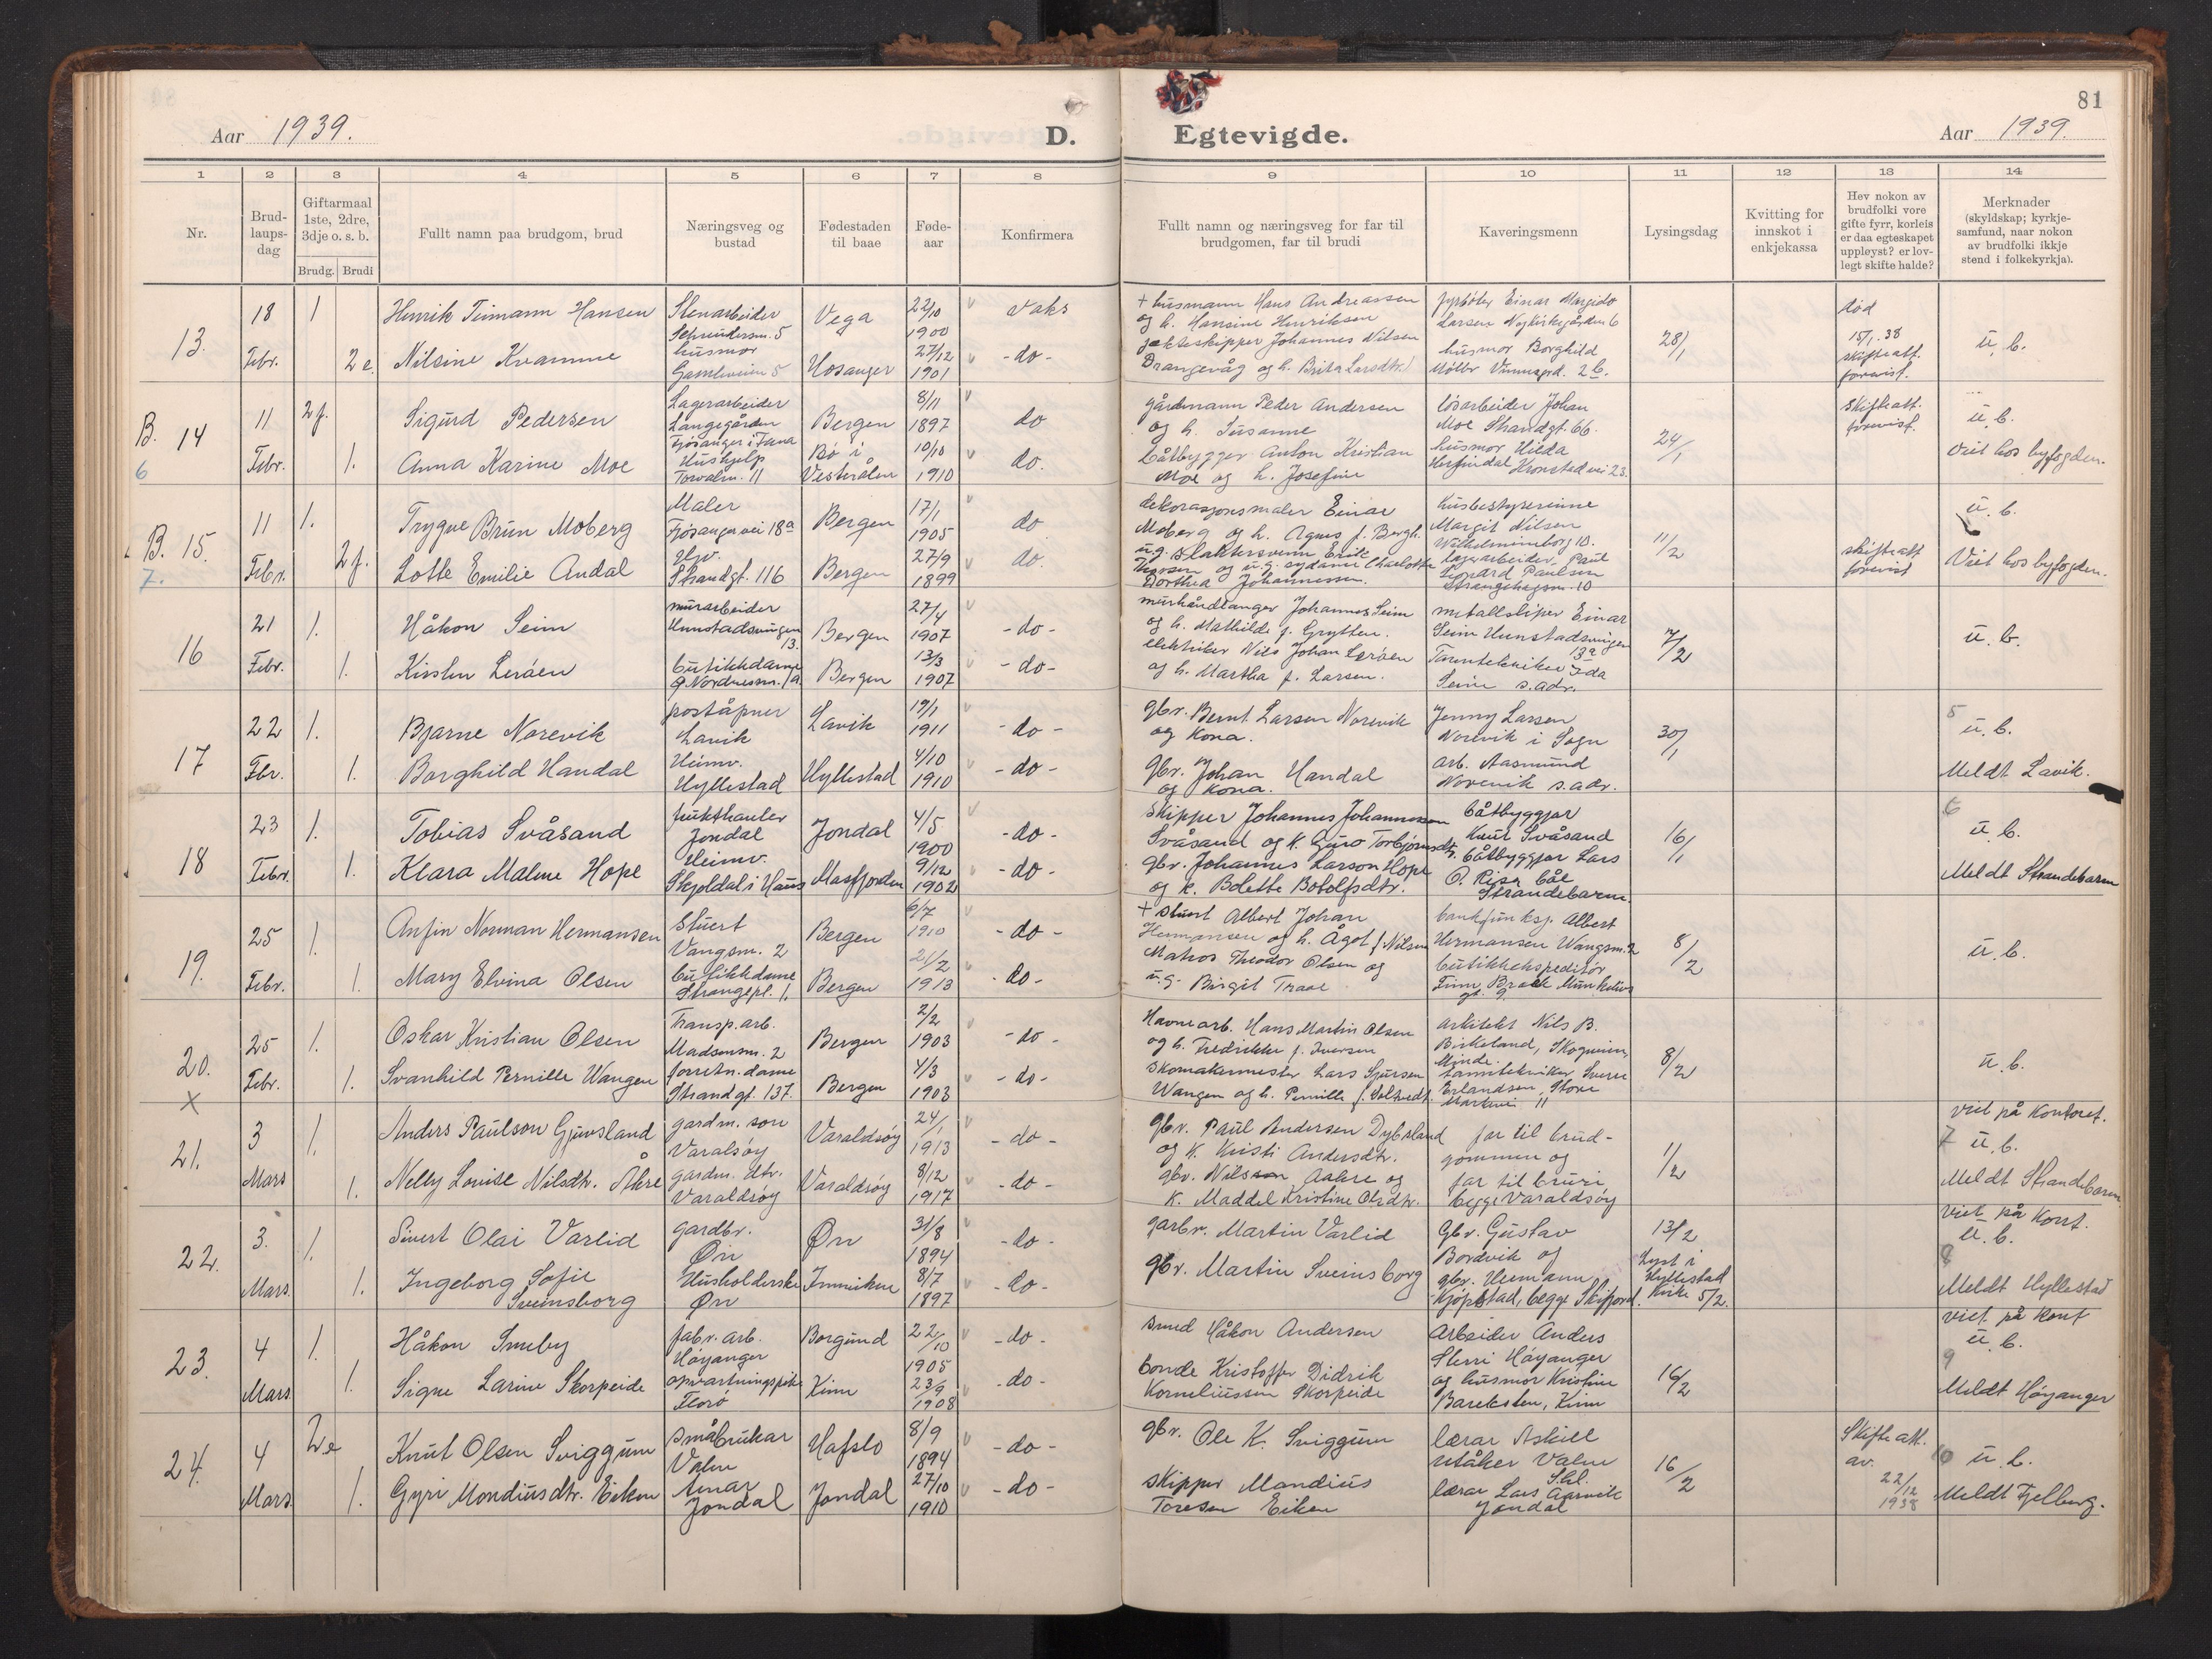 81
Aar 1939.
D. Egtevigde.
Aar 1939.
1 2 3 4 5 6 7 8 9 10 11 12 13 14
Nr.
Brudlaupsdag
Giftarmaal 1ste, 2dre, 3dje o. s. b.
Brudg. Brudi
Fullt namn paa brudgom, brud
Næringsveg og bustad
Fødestaden til baae
Fødeaar
Konfirmera
Fullt namn og næringsveg for far til brudgomen, far til brudi
Kaveringsmenn
Lysingsdag
Kvitting for innskot i enkjekassa
Hev nokon av brudfolki vore gifte fyrr, korleis er daa egteskapet uppleyst? er lovlegt skifte halde?
Merknader (skyldskap; kyrkjesamfund, naar nokon av brudfolki ikkje stend i folkekyrkja).
13. 18 Febr. 1
Henrik Teimann Hansen
Stenarbeider
Vega 22/10 1900 Vaks
+ husmann Hans Andreassen
og h. Hansine Henriksen
fyrbøter Einar Margido
Larsen Nykirkegården 6
28/1
død
15/1.38
skifteatt.
forevist.
u. b.
2 e. Nilsine Kvamme
husmor
Gamleveien 5
Hosanger 27/12 1901 - do -
jakteskipper Johannes Nilsen
Drangevåg og h. Brita Larsdtr.
husmor Borghild
B. 14 6 11 Febr. 2 f.
Sigurd Pedersen
Lagerarbeider
Langegården
Fjøsanger i Fana
Bergen 8/11 1897 do
gårdmann Peder Andersen
og h. Susanne
løsarbeider Johan
Moe Strandgt. 66.
24/1
skifteatt.
forevist.
u. b.
Viet hos byfogden.
1. Anna Karine Moe
Hushjelp
Torvalm. 11
Bø i
Vesterålen 10/10 1910 do.
båtbygger Anton Kristian
Moe og h. Josefine
husmor Hilda
Herfindal Kronstadvei 23.
B. 15. 7. 11 Febr. 1.
Trygve Brun Moberg
Maler
Fjøsangervei 18a
Bergen 17/1 1905 do
dekorasjonsmaler Einar
Moberg og h. Agnes f. Bergh.
husbestyrerinne
Margit Nilsen
Wilhelmineborg 10.
11/2
skifteatt
forevist
u. b.
Viet hos byfogden.
2 f. Lotte Emilie Andal
Strandgt. 116
Bergen 27/9 1899 do.
u.g. slaktersvenn Erik
Iversen og u.g. sydame Charlotte
Dorthea Johannessen.
lagerarbeider Paul
Leonard Paulsen
Strangehagen 10
16 21 Febr. 1.
Håkon Seim
murarbeider
Hunstadsvingen
13.
Bergen 27/4 1907 - do -
murhåndlanger Johannes Seim
og h. Mathilde f. Grytten.
metallsliper Einar
Seim Hunstadsvingen
13a
7/2
u. b.
1. Kirsten Lerøen
butikkdame
Bergen 13/3 1907 - do -
elektriker Nils Johan Lerøen
og h. Martha f. Larsen.
Ida
Seim s. adr.
17 22 Fbr. 1.
Bjarne Norevik
poståpner
Lavik
Lavik 19/1 1911 - do -
gbr. Bernt Larsen Norevik
og Kona.
Jenny Larsen
Norevik i Sogn
30/1
5
u. b.
Meldt Lavik.
1. Borghild Handal
Heimv.
Hyllestad
Hyllestad 4/10 1910 - do -
gbr. Johan Handal
og Kona.
arb. Aasmund
Norevik s. adr.
18 23 Febr. 1.
Tobias Svåsand
frukthandler
Jondal
Jondal 4/5 1900 - do -
Skipper Johannes Johannessen
Svåsand og K. Guro Torbjørnsdtr.
båtbyggjar
Knut Svåsand
16/1
6
u. b.
Meldt Strandebarm
1. Klara Malene Hope
Heimv.
Skjoldal i Haus
Masfjorden 9/12 1902 - do -
gbr. Johannes Larson Hope
og k. Bolette Botolfsdtr.
båtbyggjar Lars
O. Risa båe
Strandebarm.
19. 25 Febr. 1.
Anfin Norman Hermansen
Stuert
Vangsm. 2
Bergen 6/7 1910 - do -
+ Stuert Albert Johan
Hermansen og h. Ågot f. Nilsen
bankfunksj. Albert
Hermansen Wangsm. 2
8/2
u. b.
1. Mary Elvina Olsen
butikkdame
Strangepl. 1.
Bergen 21/2 1913 - do -
Matros Theodor Olsen og
u.g. Birgit Traae
butikkekspeditør
gt. 9
20. X 25 Febr. 1.
Oskar Kristian Olsen
Transp. arb.
Madamsm. 2
Bergen 2/2 1903 - do -
Havnearb. Hans Martin Olsen
og h. Fredrikke f. Iversen
arkitekt Nils B.
Birkeland, Skogheim,
Minde.
8/2
u. b.
1. Svanhild Pernille Wangen
forretn. dame
Strandgt. 137.
Bergen 4/3 1903 - do -
Skomakermester Lars Sjursen
Wangen og h. Pernille f. Solsvedt.
tanntekniker Sverre
Erlandsen, Store
Markevei 11
21. 3 Mars 1.
Anders Paulson Gjuvsland
gardm. son
Varalsøy
Varaldsøy 24/1 1913 - do -
gbr. Paul Andersen Dybsland
og K. Kristi Andersdtr.
far til brudgommen og
1/2
viet på Kontoret.
7 u. b.
Meldt Strandebarm
1. Nelly Lovise Nilsdtr. Åkre
gardm. dtr.
Varaldsøy
Varaldsøy 8/12 1917 - do -
gbr. Nils Aakre og
K. Maddel Kristine Olsdtr.
far til bruri,
begge Varaldsøy
22. 3. Mars. 1.
Sivert Olai Varlid
gardbr.
Øn
Øn 31/8 1894 - do -
garbr. Martin Varlid
Gbr. Gustav
Bordvik og
13/2
Lyst i
Hyllestad
Kirke 5/2.
viet på Kont.
u. b.
8
Meldt Hyllestad
1. Ingeborg Sofie
Sveinsborg
Husholderske
Øn
Innviken 8/7 1897 - do -
gbr. Martin Sveinsborg
gbr. Hermann
Kjøpstad, begge Skifjord.
23. 4 Mars 1.
Håkon Smeby
fabr. arb.
Høyanger
Borgund 22/10 1905 - do -
Smed Håkon Andersen
Arbeider Anders
Sterri Høyanger
16/2
viet på Kont
u. b.
9
Meldt Høyanger
1. Signe Larine Skorpeide
opvartningspike
Florø
Kinn 23/9 1908 - do -
bonde Kristoffer Didrik
Korneliussen Skorpeide
og husmor Kristine
Bareksten, Kinn
24. 4 Mars. 2 e
Knut Olsen Sviggum
Småbrukar
Valen
Hafslo 8/9 1894 - do -
gbr. Ole K. Sviggum
lærar Askill
Utåker Valen
16/2
Skifte att.
av.
22/12
1938
10 u. b.
Meldt Fjelberg.
1. Gyri Mondiusdtr. Eiken
Jondal
Jondal 27/10 1910 - do -
Skipper Mandius
Toresen Eiken
lærar Lars Aarvik
Jondal